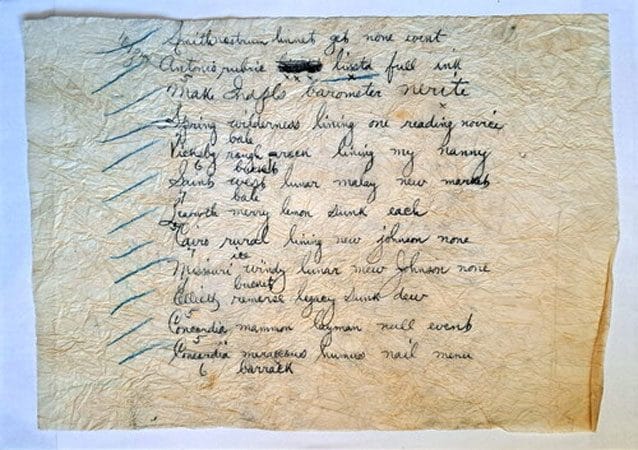 Smith nostrum linnet get none event
Antonio rubric lissta full ink
5
Make Indpls barometer nerite
Spring wilderness lining one reading novice
bale
Vicksbg rough rack lining my nanny
6 bucket
Saints west lunar malay new market
bale
Leawoth merry lemon sunk each
Cairo rural lining new johnson none
ice
Missouri windy lunar mew Johnson none
bucket
remorse legacy sunk dew
5
Concordia mammon layman null event
5
Concordia humus nail menu
6 barrack